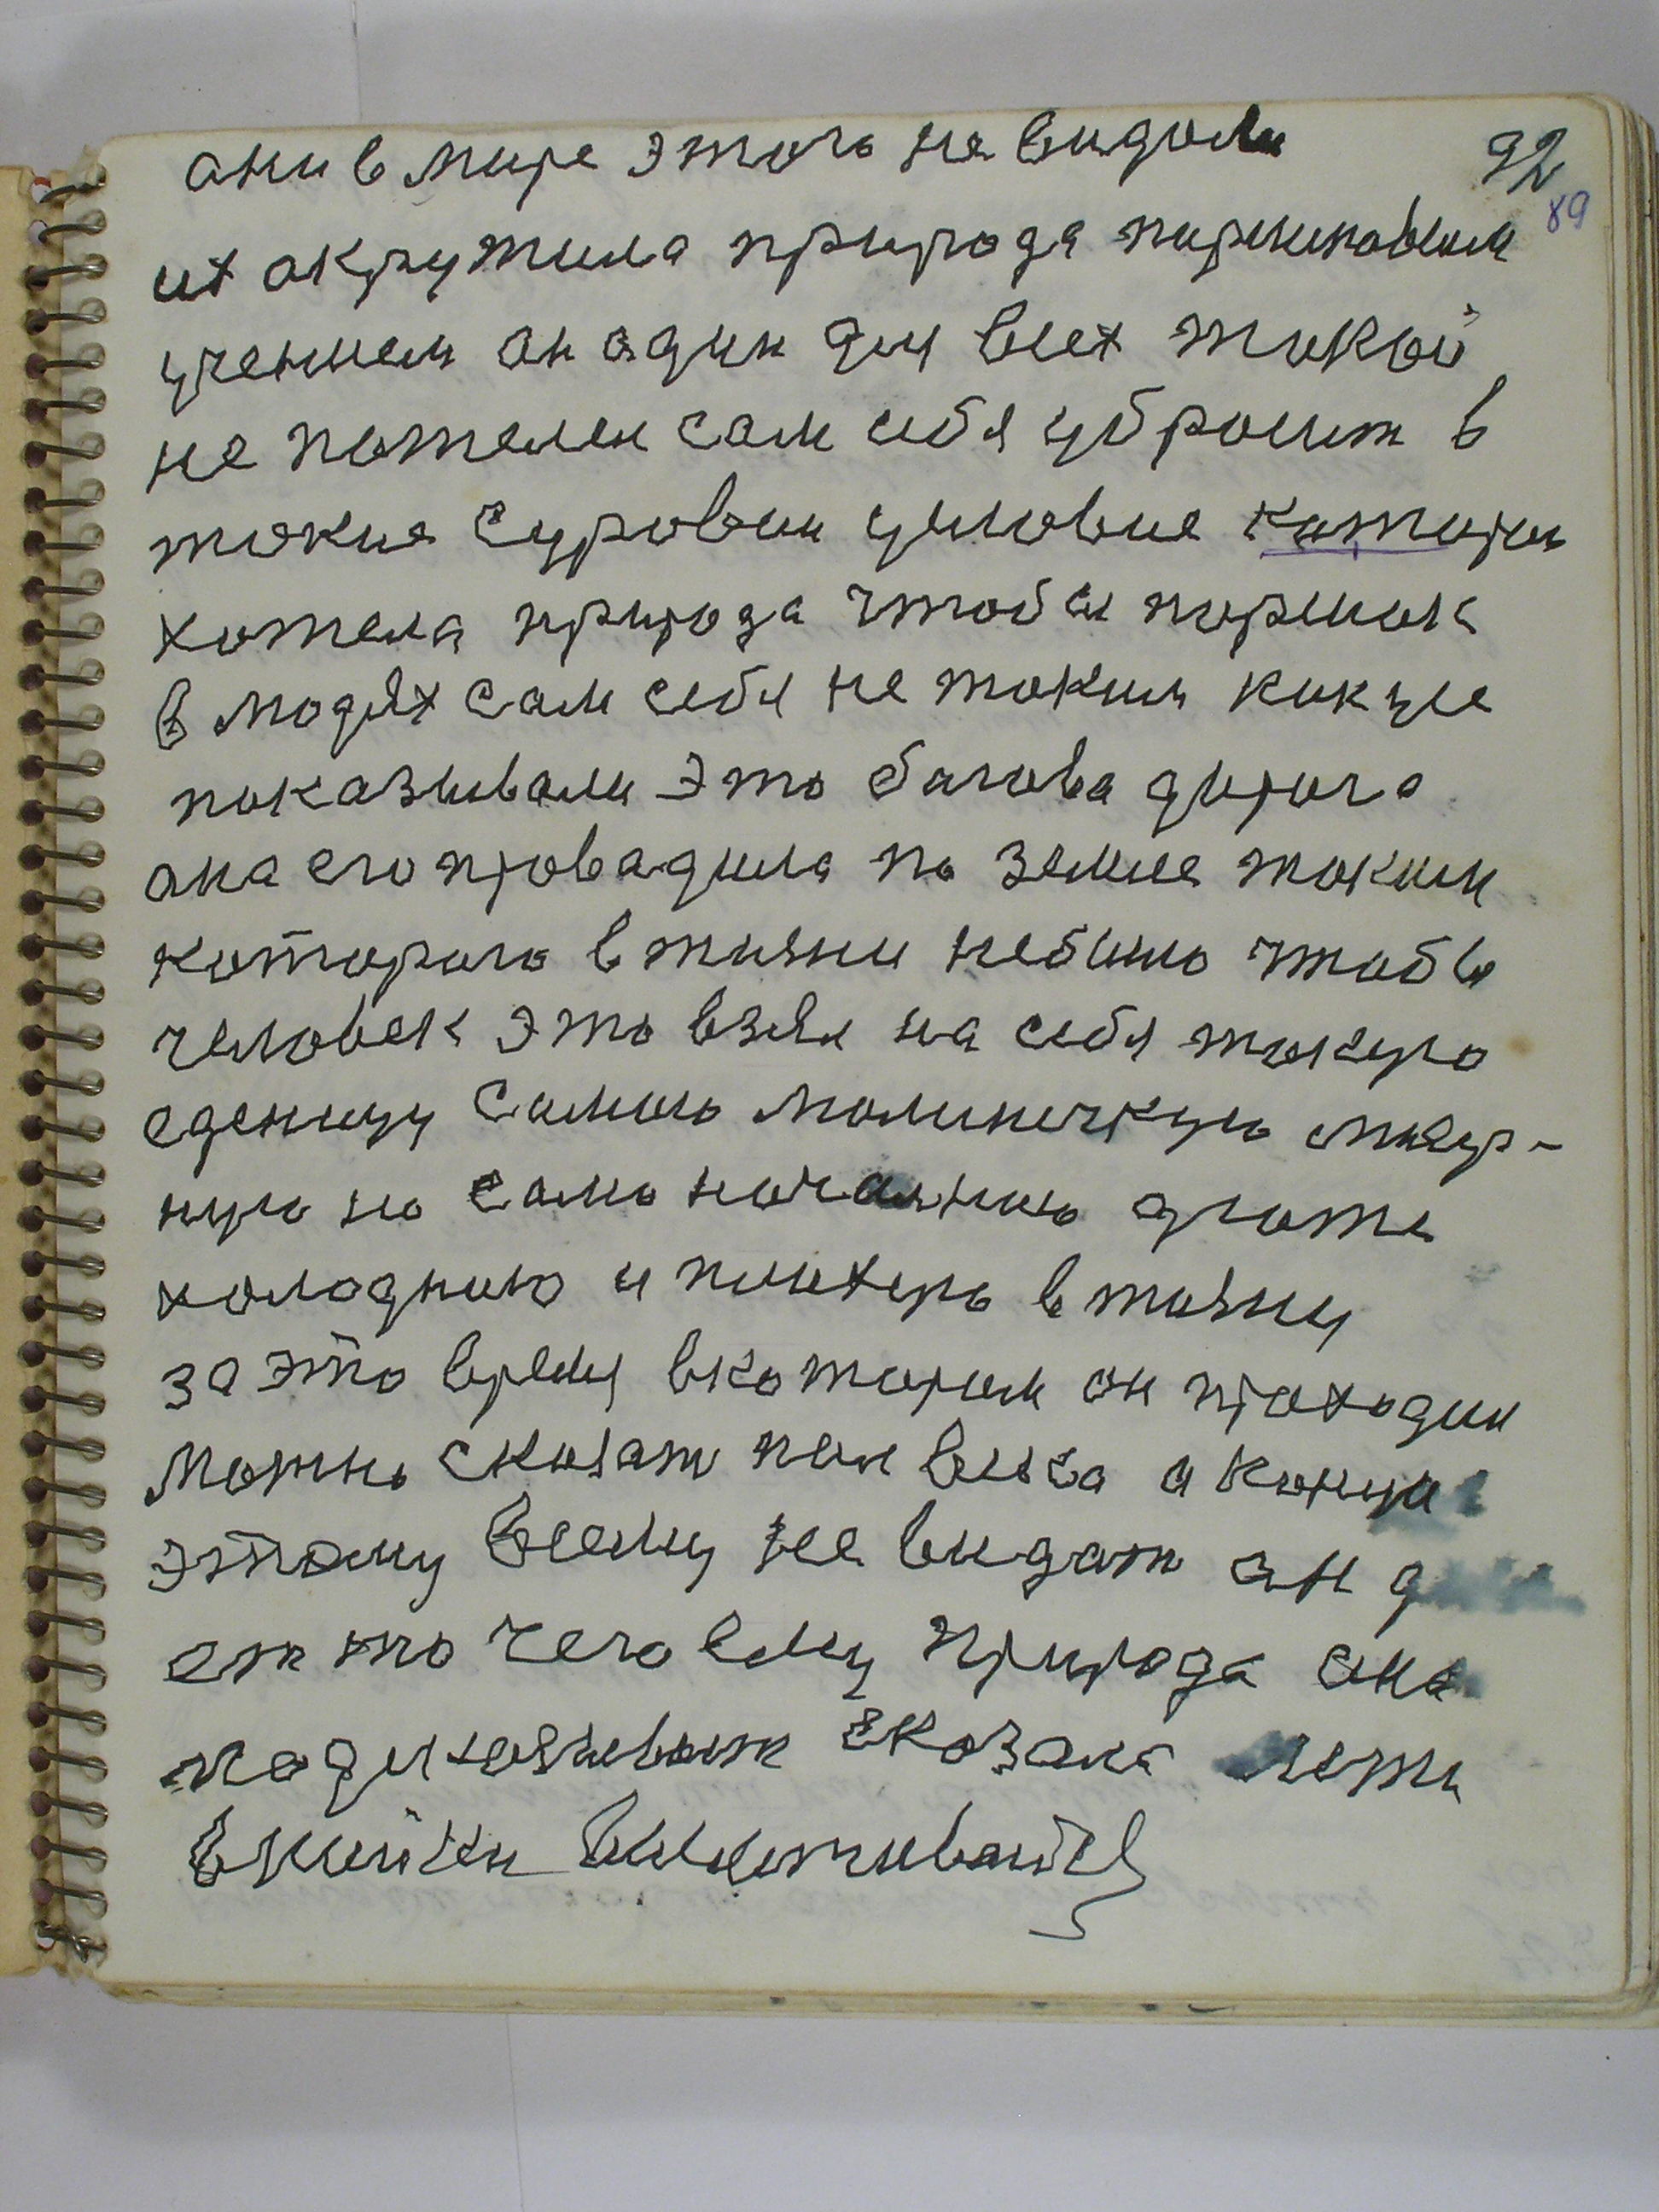 ани в мире этого не видали
92
89
их окружила природа паршиковым
учением он один для всех такой
не пожелел сам себя убросит в
такие суровыи условие каторы
хотела природа чтобы паршак
в людях сам себя не таким как усе
показывали это багова дорога
ана его провадила по земле таким
которого в жизни небыло чтобы
человек это взял на себя такую
еденицу самою малинечкую мизер-
ную но само начальною
холодною и плохую в жизни
за это время вкотором он проходил
можно сказат пол века а конца
этому всему не видат он
ет то чего ему природа она
подсказывает сказала